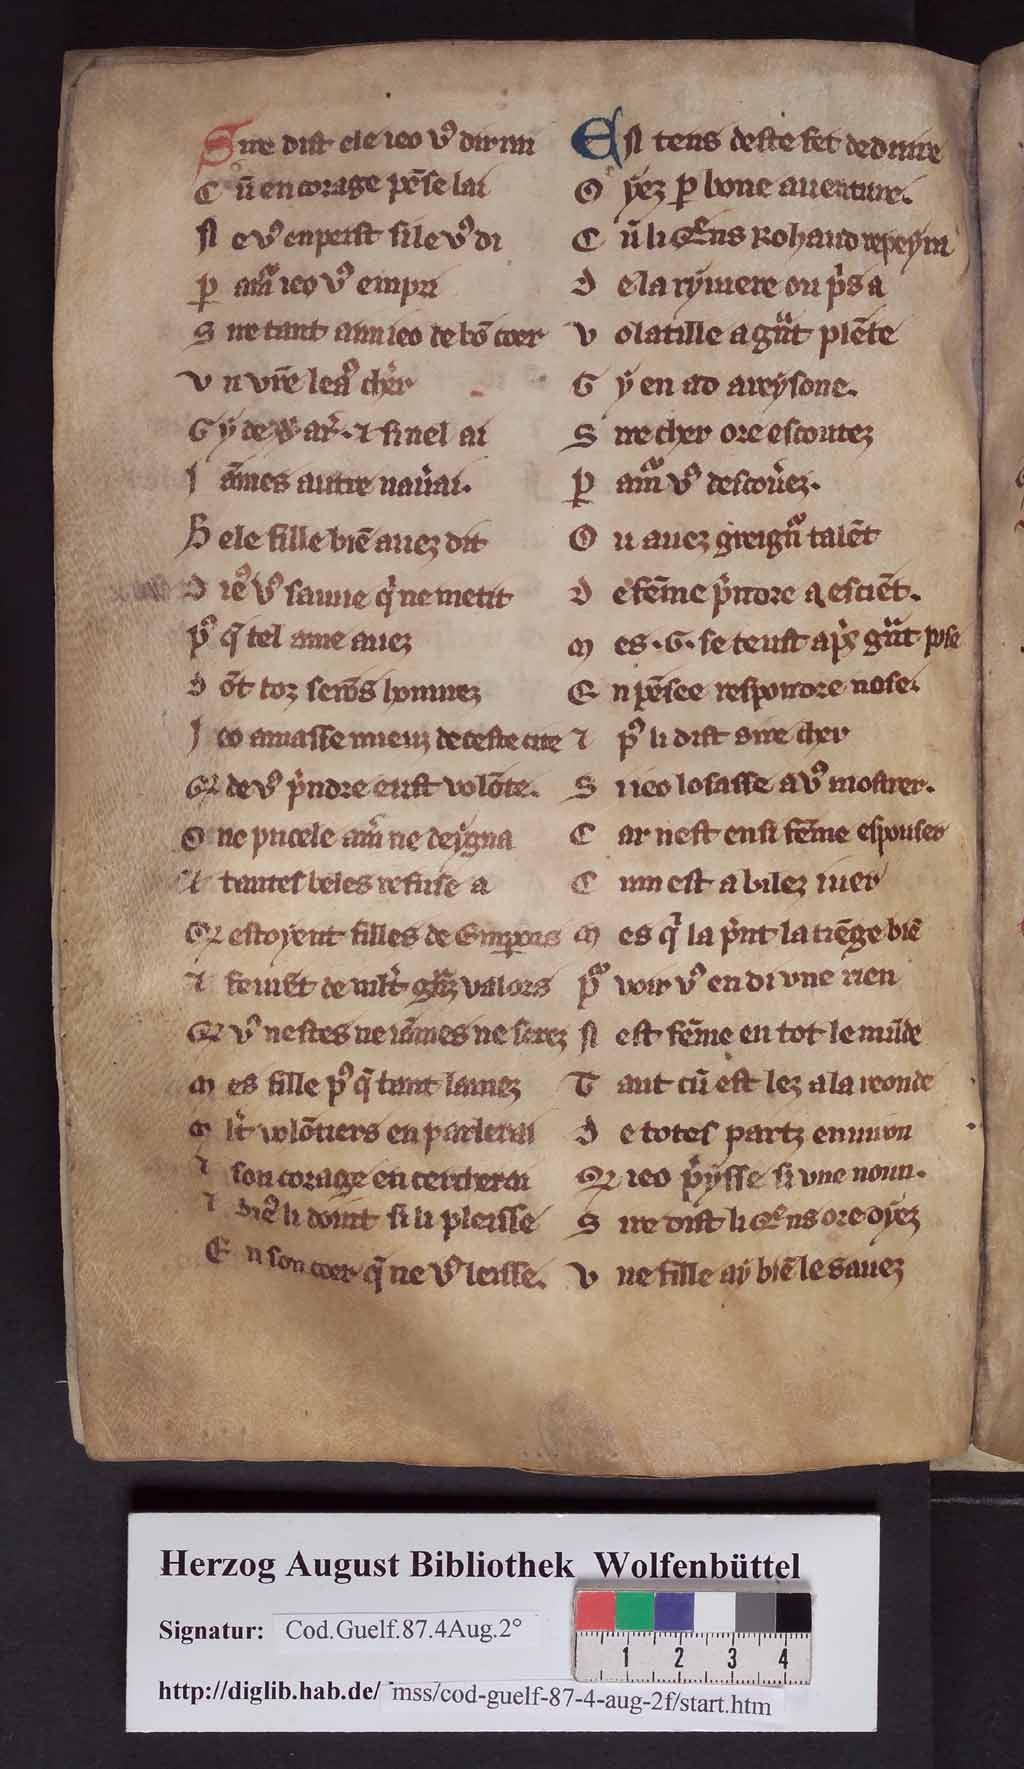 Sire dist ele ieo vꝰ dirrai
C ū en corage pēse lai
N e vꝰ en peist si le vꝰ di
ꝑ amᷣ ieo vꝰ empri
S ire tant aim ieo de bō coer
V n vrē leaꝰ chꝰr
G ẏ de War̉ · ⁊ si nel ai
J āmes autre nau̓ai.
B ele fille biē auez dit
D ieꝰ vꝰ sauue q̉ ne metit
pꝰ q̄ tel ame auez
D ōt toz serōs honniez
J eo amasse mieuz de ceste cite
Q̄ de vꝰ p̉ndre eust volōte.
O nc pucele am̄ ne deẏgna
A tantes beles refuse a
Q̄ estoyent filles de Emꝑors
⁊ feui̅t de ml̉t gᷓz valors
Q̄ vꝰ nestes ne iāmes ne serez
M es fille pꝰ q̄ tant lamez
M l̉t volōtiers en parlerai
⁊ son corage en cercherai
⁊ dieꝰ li doint si li pleisse
E n son coer q̄ ne vꝰ leisse.
EN tens de ste fet deduire
O ẏez ꝑ bone auenture.
C ū li Q̄ns Rohaud repeẏra
D e la rẏuiere ou p̉s a
V olatille a gᷓt plēte
G ẏ en ad areẏsone.
S ire cher ore escoutez
ꝑ amᷣ vꝰ descou̓ez.
O u auez greignᷣ talēt
D e fēme p̉ndre a esciēt.
M es ·G· se teust ap̉s gᷓt pose
E n pēsee respondre nose.
⁊ pꝰ li dist sire cher
S i ieo losasse a vꝰ mostrer.
C ar nest ensi fēme espuser
C um est a bilez iuer
M es q̉ la p̉nt la tiēge biē
pᷣ voir vꝰ en di vne rien
N est fēme en tot le mūde
T ant cū est lez a la reonde
D e totes partz enuiron
Q̄ ieo p̉ẏsse si vne noun.
S ire dist li Q̄ns ore oẏez
V ne fille aẏ biē le sauez
Herzog August Bibliothek Wolfenbüttel
Signatur: Cod.Guelf.87.4Aug.2°
1 2 3 4
http://diglib.hab.de/ mss/cod-guelf-87-4-aug-2f/start.htm